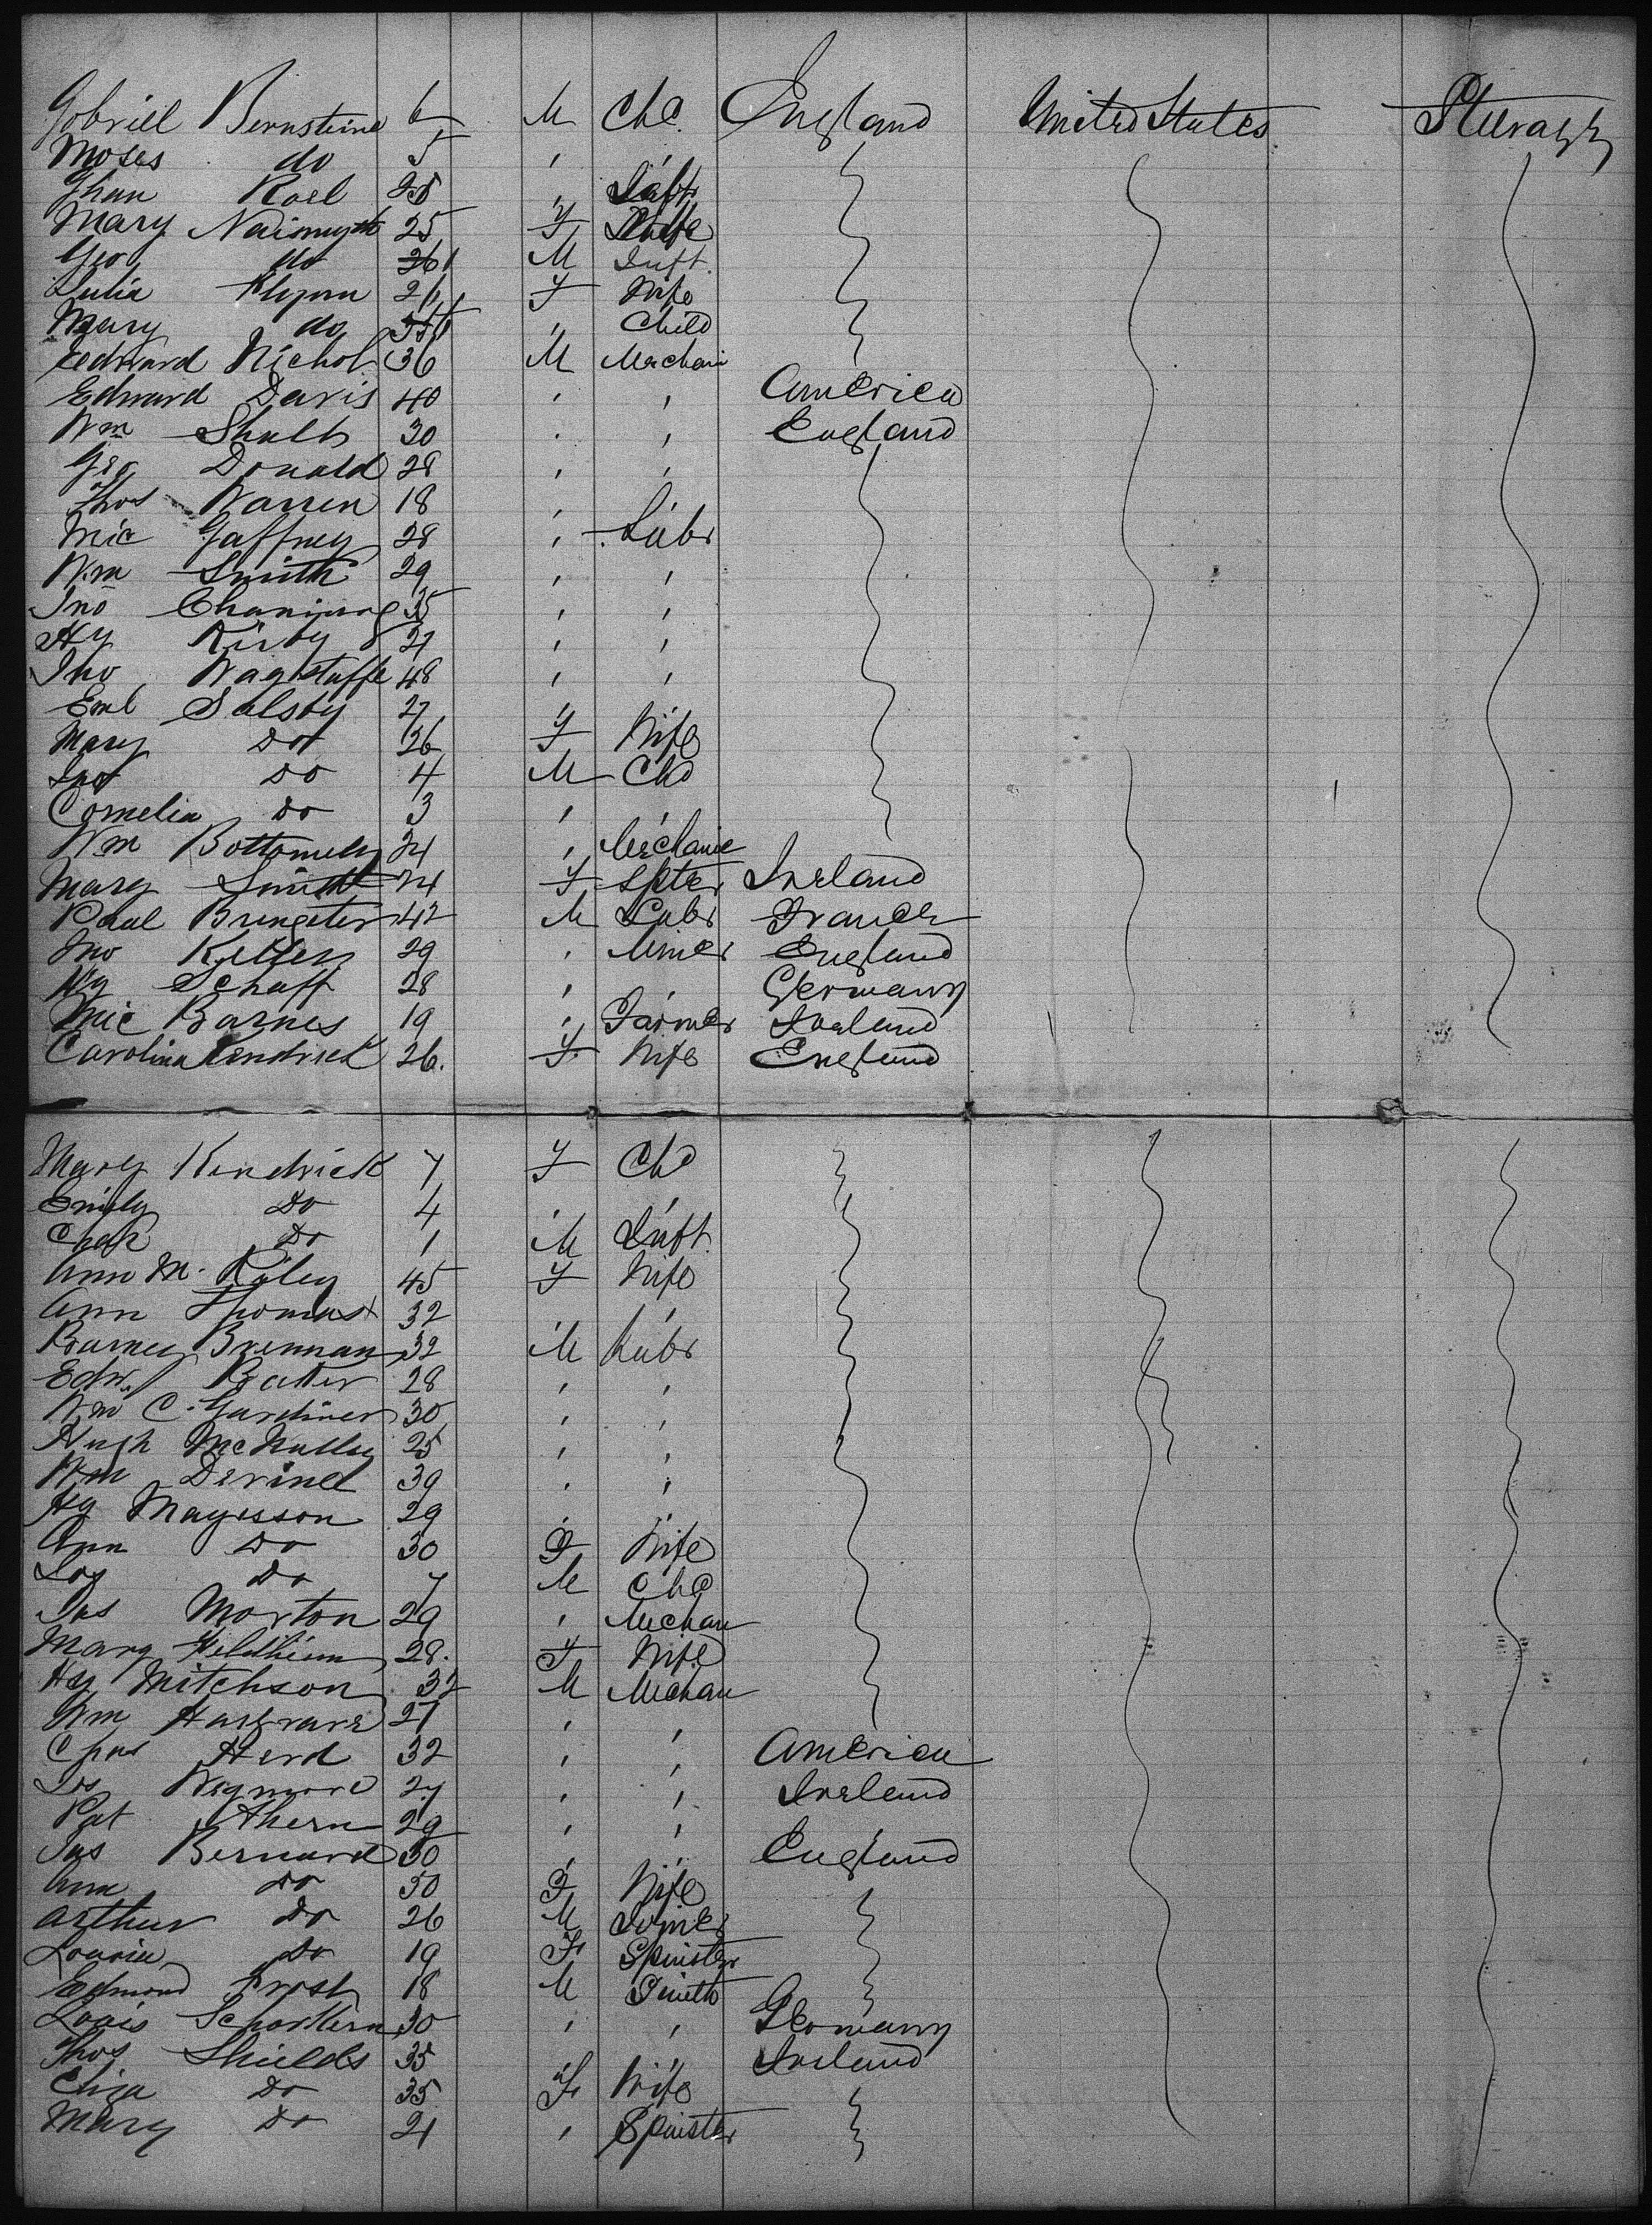 Gobriel Bernsteine 6 M Chd. England United States Steerage
Moses do 5 "
Ghun Roel 25 "
Mary Naismyth 25 F Wife
Geo do M Inft.
Julia Flynn F Wife
Mary do " Child
Edward Nichol 36 M Mechani
Edward Davis 40 " " America
Wm Shults 30 " " England
Geo Donald 28 " "
Thos Warren 18 " "
Mic Gaffney 28 " Labr
Wm Smith 29 " "
Jno 35 " "
Hy Kirby 27 " "
Jno Wagstaffe 48 " "
Eml Salsby 27 " "
Mary Do 26 F Wife
Do 4 M Chd
Cornelia Do 3 " "
Wm Bottomely 24 " Mechanic
Mary Smith 24 F Spster Ireland
Paul 42 M Labr France
Jno Kelley 29 " Miner England
Hy Schaff 28 " " Germany
Mic Barnes 19 " Farmer Ireland
Carolina Kendrick 26. F Wife England
Mary Kendrick 7 F Chd
Emily Do 4 " "
Chas Do 1 M Inft.
Ann M. Riley 45 F Wife
Ann Thomas 32 " "
Barney Brennan 32 M Labr
Edw. 28 " "
Wm C. Gardiner 30 " "
Hugh McNulty 25 " "
Wm Devine 39 " "
Hy Mayesson 29 " "
Ann Do 30 F Wife
Jos Do 7 M Chd
Jas Morton 29 " Mechan
Mary 28. F Wife
Hy Mitchson 32 M Mechan
Wm Hargrave 27 " "
Chas Herd 32 " " America
Jos Wigmore 27 " " Ireland
Pat Ahern 29 " " "
Jas Bernard 50 " " England
Ann Do 50 F Wife
Arthur Do 26 M Joiner
Do 19 F Spinster
Edmond Frost 18 M Smith
Louis 30 " " Germany
Thos Shields 35 " " Ireland
Eliza Do 35 F Wife
Mary Do 21 " Spinster